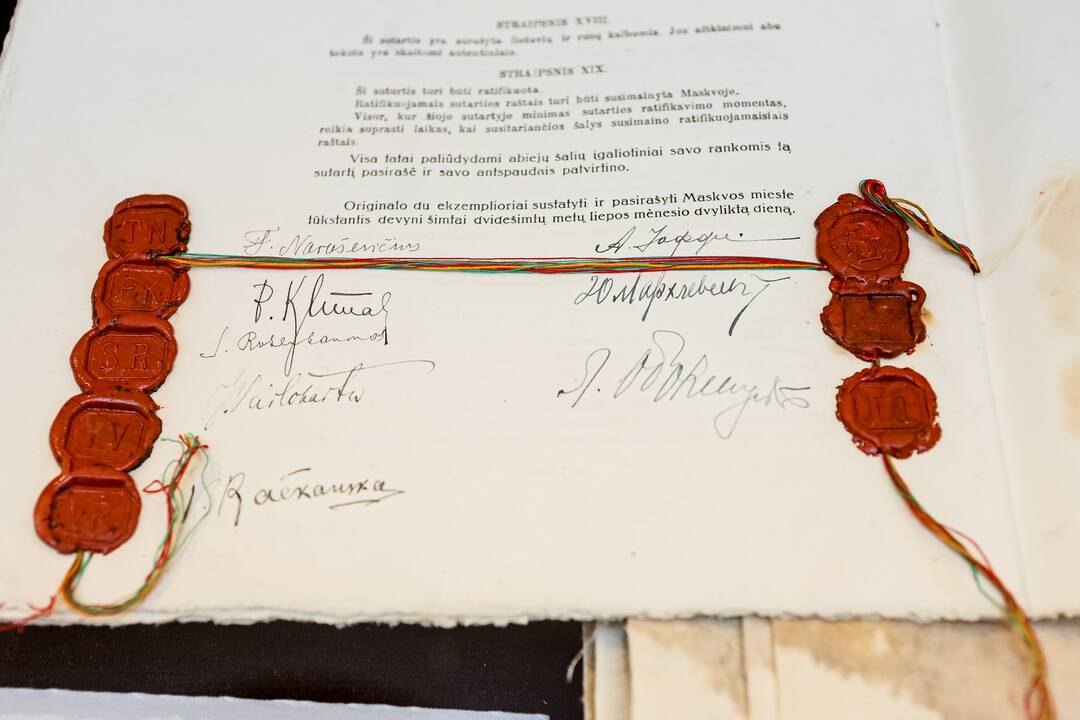 STRAIPSNIS XVIII.
Ši sutartis yra surašyta lietuvių ir rusų kalbomis. Jos aiškinimui abu
tekstu yra skaitomi autentiniais.
STRAIPSNIS XIX.
Ši sutartis turi būti ratifikuota.
Ratifikuojamais sutarties raštais turi būti susimainyta Maskvoje.
Visur, kur šioje sutartyje minimas sutarties ratifikavimo momentas,
reikia suprasti laikas, kai susitariančios šalys susimaino ratifikuojamaisiais
raštais.
Visa tatai paliūdydami abiejų šalių įgaliotiniai savo rankomis tą
sutartį pasirašė ir savo antspaudais patvirtino.
Originalo du ekzemplioriai sustatyti ir pasirašyti Maskvos mieste
tūkstantis devyni šimtai dvidešimtų metų liepos mėnesio dvyliktą dieną.
T. Naruševičius А. Иоффе.
P. Klimas Ю Мархлевский
S. Rosenbaumas
Vailokaitis Л. Оболенский
V. Račkauskas
TN
P.K
S.R
J.V
V.R
Л.О